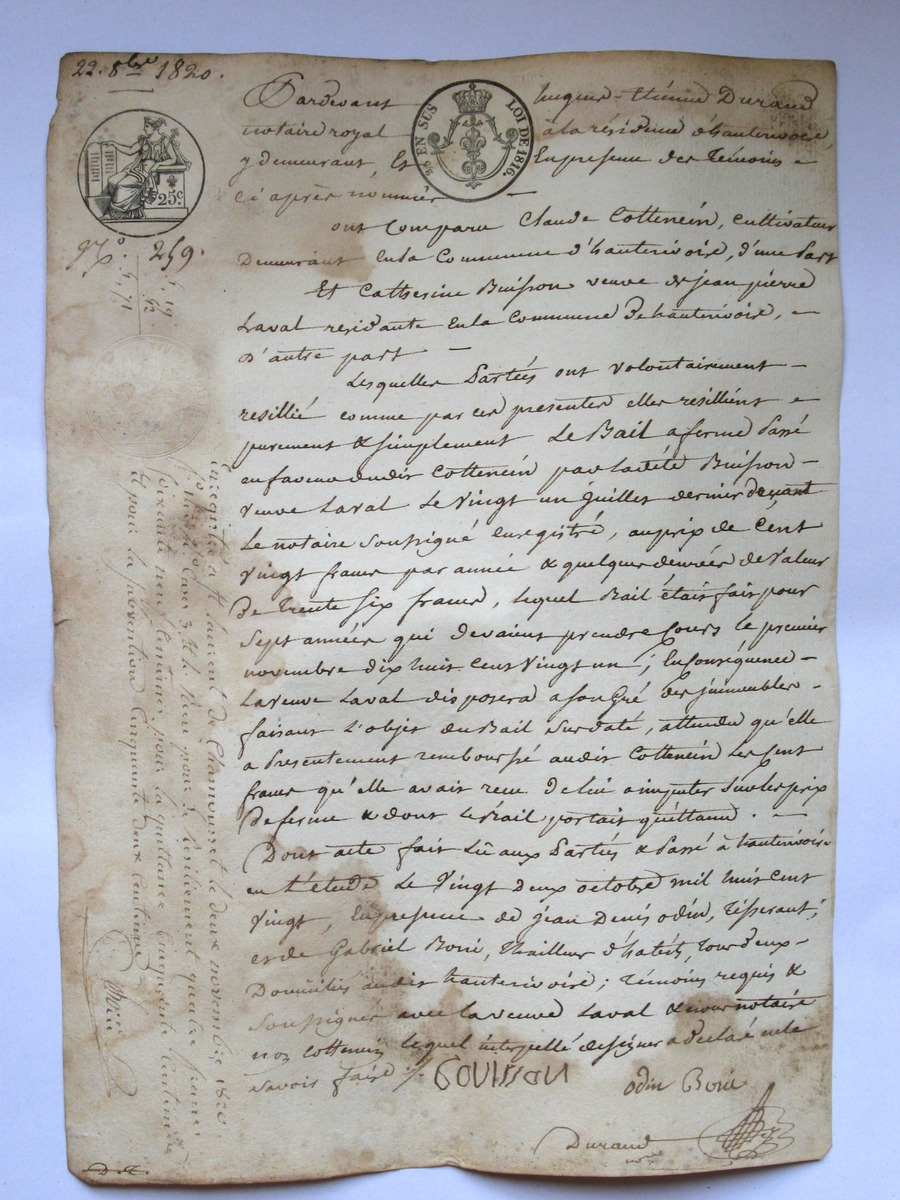 22. 8bre 1820.
25 EN SUS LOI DE 1816.
25c.
No. 259.
Pardevant hugues-Etienne Durand
notaire royal à la résidence d'hauterivoire,
y demeurant, Et En presence des Témoins
ci après nommés
ont Comparu Claude Cottencin, cultivateur
Demeurant En la Commune d'hauterivoire, d'une Part
Et Catherine Buisson veuve de jean pierre
Laval residante En la Commune De hauterivoire,
D'autre part
Lesquelles Parties ont volontairement
resillié comme par ces presentes elles resillient
purement & simplement Le Bail a ferme Passé
en faveur dudit Cottencin par ladite Buisson
veuve Laval Le Vingt un juillet dernier devant
Le notaire soussigné Enregistré, au prix de Cent
Vingt francs par année & quelques denrées de Valeur
De Trente Six francs, lequel Bail était fait pour
Sept années qui devaient prendre Cours le premier
novembre dix huit cent Vingt un; En Conséquence
La veuve Laval disposera a son Gré des immeubles
faisant L'objet du Bail Susdaté, attendu qu'elle
a Presentement remboursé audit Cottencin Les Cent
francs qu'elle avait recu de lui a imputer Sur les prix
De ferme & dont le Bail portait quittance.
Dont acte fait Lû aux Parties & Passé à hauterivoire
en L'étude Le Vingt Deux octobre mil huit Cent
Vingt, En presence de jean Denis odin, Tisserant,
et de Gabriel Borie, Thailleur d'habits, Tous Deux
Domiciliés audit hauterivoire; Témoins requis &
Soussignés avec la veuve Laval & nous notaire
non Cottencin lequel interpellé de signer a Déclaré ne le
Savoir faire ./.
BOUISSON
odin Borie
Durand
nore
Enregistré à St Laurent de Chamousset le deux novembre 1820.
Reçu pour le Résiliement quatre francs
Soixante neuf Centimes, pour la quittance Cinquante Centimes
Et pour la subvention Cinquante deux Centimes
D.t.